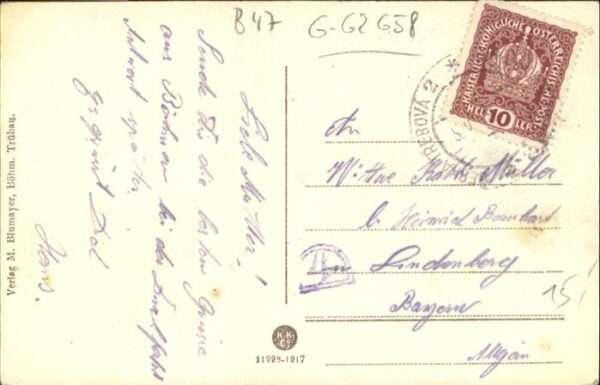 B47
G-G2 G58
Liebe Mutter!
Sende Dir die besten Grüsse
aus Böhmen bei der Durchfahrt
Antwort später.
Es grüsst Dich
Hans.
Verlag M. Blumayer, Böhm. Trübau.
KAISERLICHE KÖNIGLICHE ÖSTERR. POST
10
HELLER
TŘEBOVÁ 2
An
Witwe Müller
b. Heinrich Bernhard
in Lindenberg
Bayern
Allgäu
15!
K.K.
11998-1917